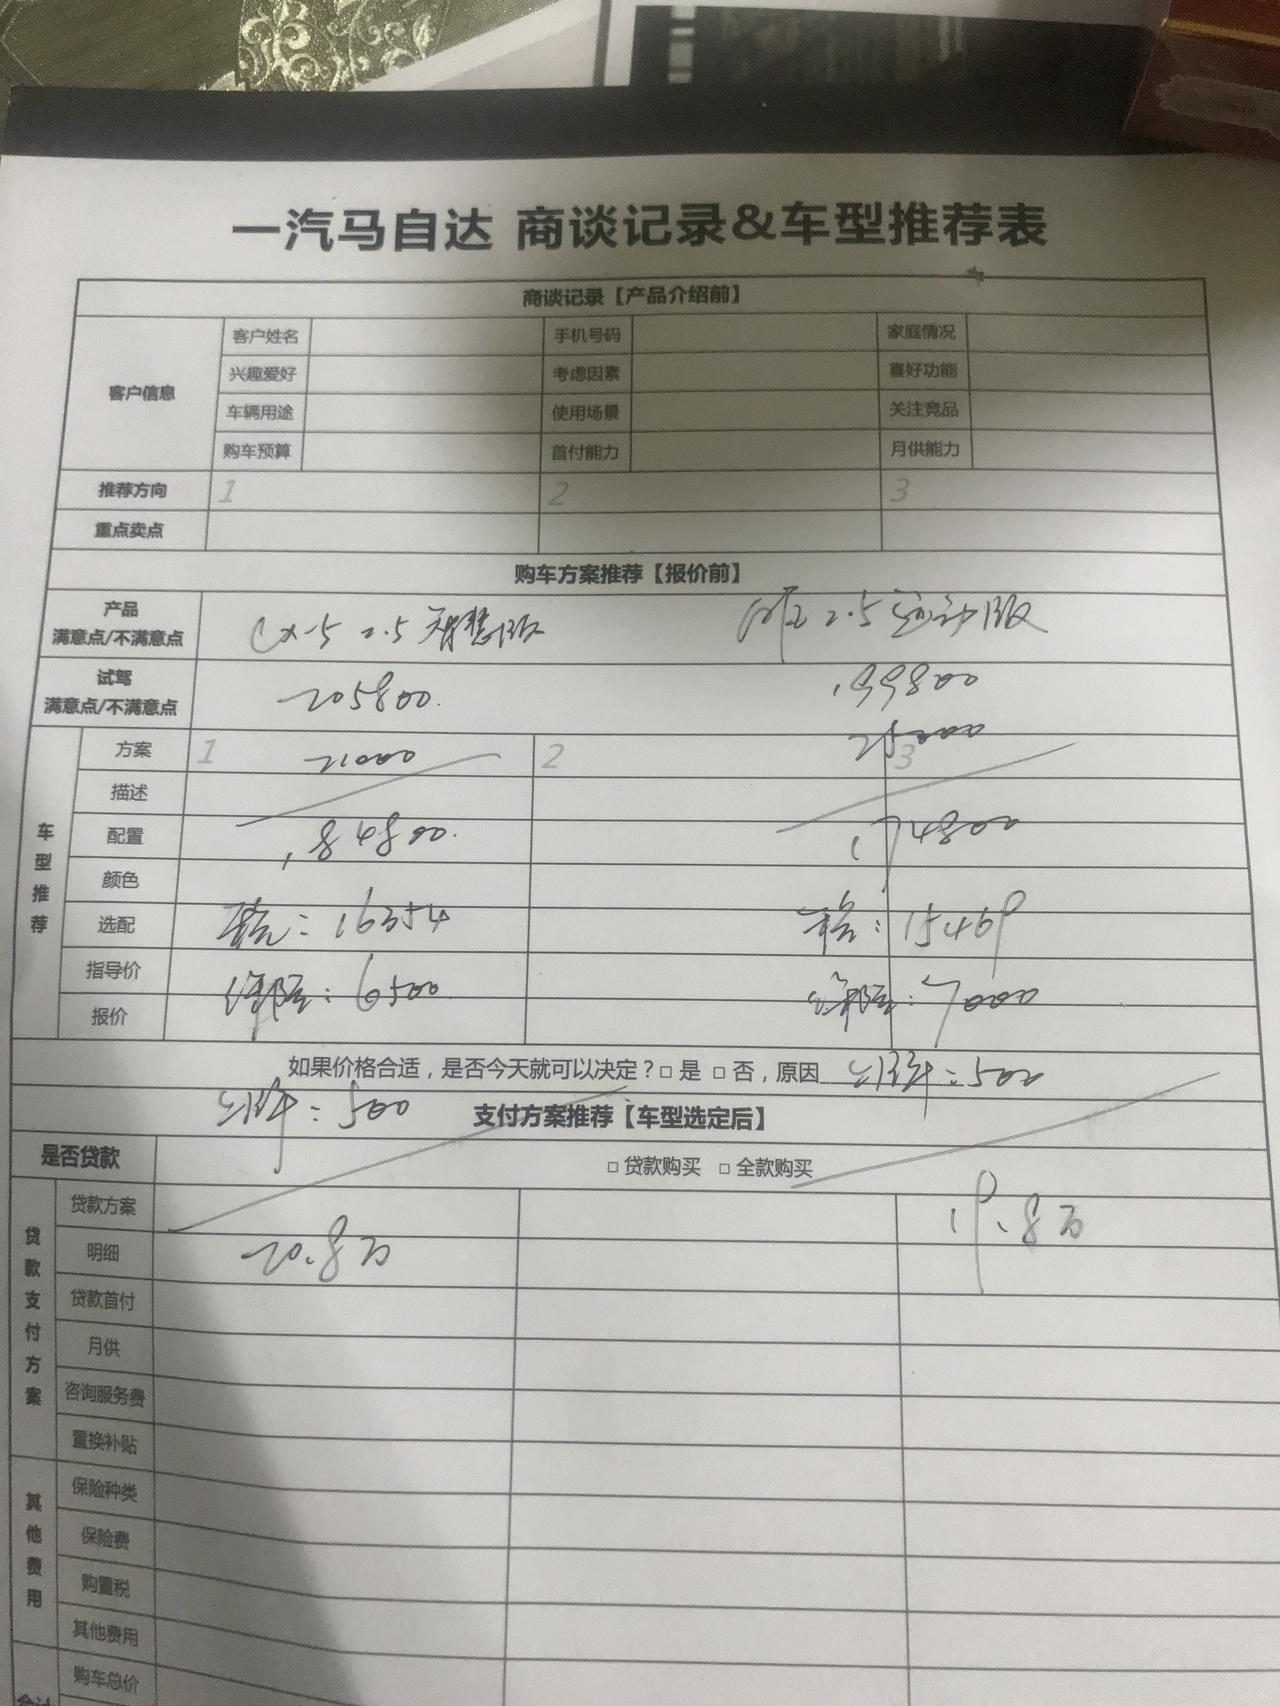 一汽马自达 商谈记录&车型推荐表
商谈记录【产品介绍前】
客户信息
客户姓名 手机号码 家庭情况
兴趣爱好 考虑因素 喜好功能
车辆用途 使用场景 关注竞品
购车预算 首付能力 月供能力
推荐方向 1 2 3
重点卖点
购车方案推荐【报价前】
产品
满意点/不满意点
CX-5 2.5 智慧版 2.5 运动版
试驾
满意点/不满意点
205800. 199800
25000
车型推荐
方案 1 21000 2 3
描述
配置 184800. 174800
颜色
选配 税: 16354 税: 15469
指导价 保险: 6500 保险: 7000
报价
如果价格合适，是否今天就可以决定？□ 是 □ 否，原因 上牌: 500
上牌: 500 支付方案推荐【车型选定后】
是否贷款 □ 贷款购买 □ 全款购买
贷款支付方案
贷款方案 19.8万
明细 20.8万
贷款首付
月供
咨询服务费
置换补贴
其他费用
保险种类
保险费
购置税
其他费用
购车总价
合计